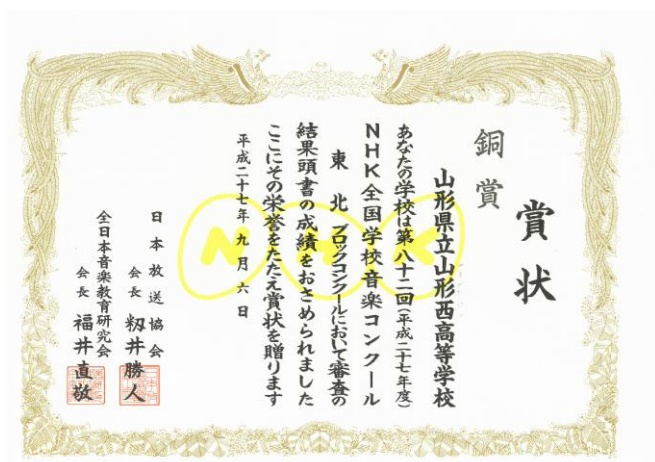 賞状
銅賞
山形県立山形西高等学校
あなたの学校は第八十二回(平成二十七年度)
NHK全国学校音楽コンクール
東北ブロックコンクールにおいて審査の
結果頭書の成績をおさめられました
ここにその栄誉をたたえ賞状を贈ります
平成二十七年九月六日
日本放送協会
会長 籾井勝人
全日本音楽教育研究会
会長 福井直敬
NHK